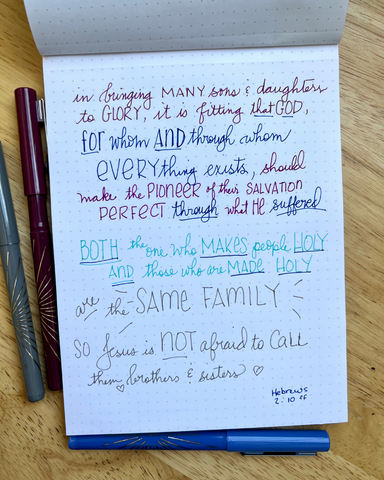 in bringing MANY sons & daughters
to GLORY, it is fitting that GOD,
for whom AND through whom
EVERYthing exists, should
make the PIONEER of their SALVATION
PERFECT through what HE suffered
BOTH the one who MAKES people HOLY
AND those who are MADE HOLY
are the SAME FAMILY
SO Jesus is NOT afraid to call
them brothers & sisters ♡
Hebrews
2:10 ff